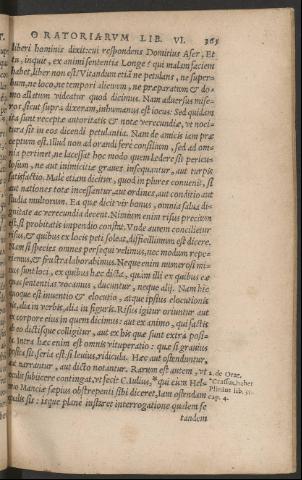 ORATORIARVM LIB. VI. 365
liberi hominis dixit: cui respondens Domitius Afer, Et
tu, inquit, ex animi sententia Longe? qui malam faciem
habet, liber non est? Vitandum etiã ne petulans, ne super-
bum, ne loco, ne tempori alienum, ne præparatum & do-
mo allatum videatur quod dicimus. Nam aduersus mise-
ros, sicut suprà dixeram, inhumanus est iocus: Sed quidam
ita sunt receptæ autoritatis & notæ verecundiæ, vt noci-
tura sit in eos dicendi petulantia. Nam de amicis iam præ
ceptum est. Illud non ad oratoris consilium, sed ad om-
nia pertinet, ne lacessat hoc modo quem ledere sit pericu-
losum, ne aut inimicitiæ graues insequantur, aut turpis
satisfactio. Male etiam dicitur, quod in plures conuenit, si
aut nationes totæ incessantur, aut ordines, aut conditio aut
studia multorum. Ea quæ dicit vir bonus, omnia salua di-
gnitate ac verecundia dicent. Nimium enim risus precium
est, si probitatis impendio constat. Vnde autem concilietur
risus, & quibus ex locis peti soleat, difficillimum est dicere.
Nam si species omnes persequi velimus, nec modum repe-
riemus, & frustra laborabimus. Neque enim numerosi mi-
nus sunt loci, ex quibus hæc dicta, quàm illi ex quibus eæ
quas sententias vocamus, ducuntur, neque alij. Nam hîc
quoque est inuentio & elocutio, atque ipsius elocutionis
vis, alia in verbis, alia in figuris. Risus igitur oriuntur aut
ex corpore eius in quem dicimus: aut ex animo, qui factis
ab eo dictisque colligitur, aut ex his quæ sunt extrà posi-
ta. Intra hæc enim est omnis vituperatio: quæ si grauius
posita sit, seria est: si leuius, ridicula. Hæc aut ostenduntur,
aut narrantur, aut dicto notantur. Rarum est autem, vt
oculis subijcere contingat, vt fecit C. Iulius,* qui cum Hel-
uio Manciæ sæpius obstrepenti sibi diceret, Iam ostendam
qualis sis: isque plane instaret interrogatione qualem se
tandem
2. de Orat.
*Crassus, habet
Plinius lib. 35.
cap. 4.